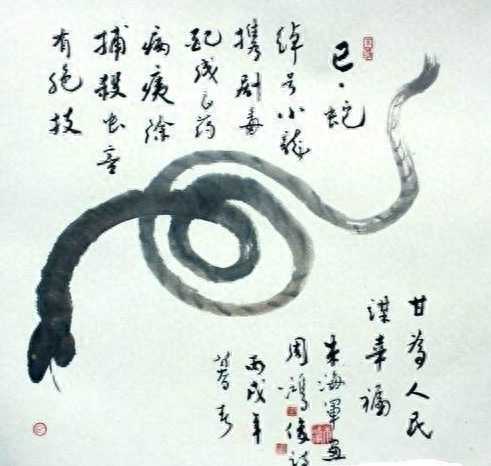 巳·蛇
绰号小龍
携剧毒
配成良药
病痍除
捕殺虫害
有绝技
甘為人民
谋幸福
朱海軍画
周鸿俊诗
丙戌年
暮春